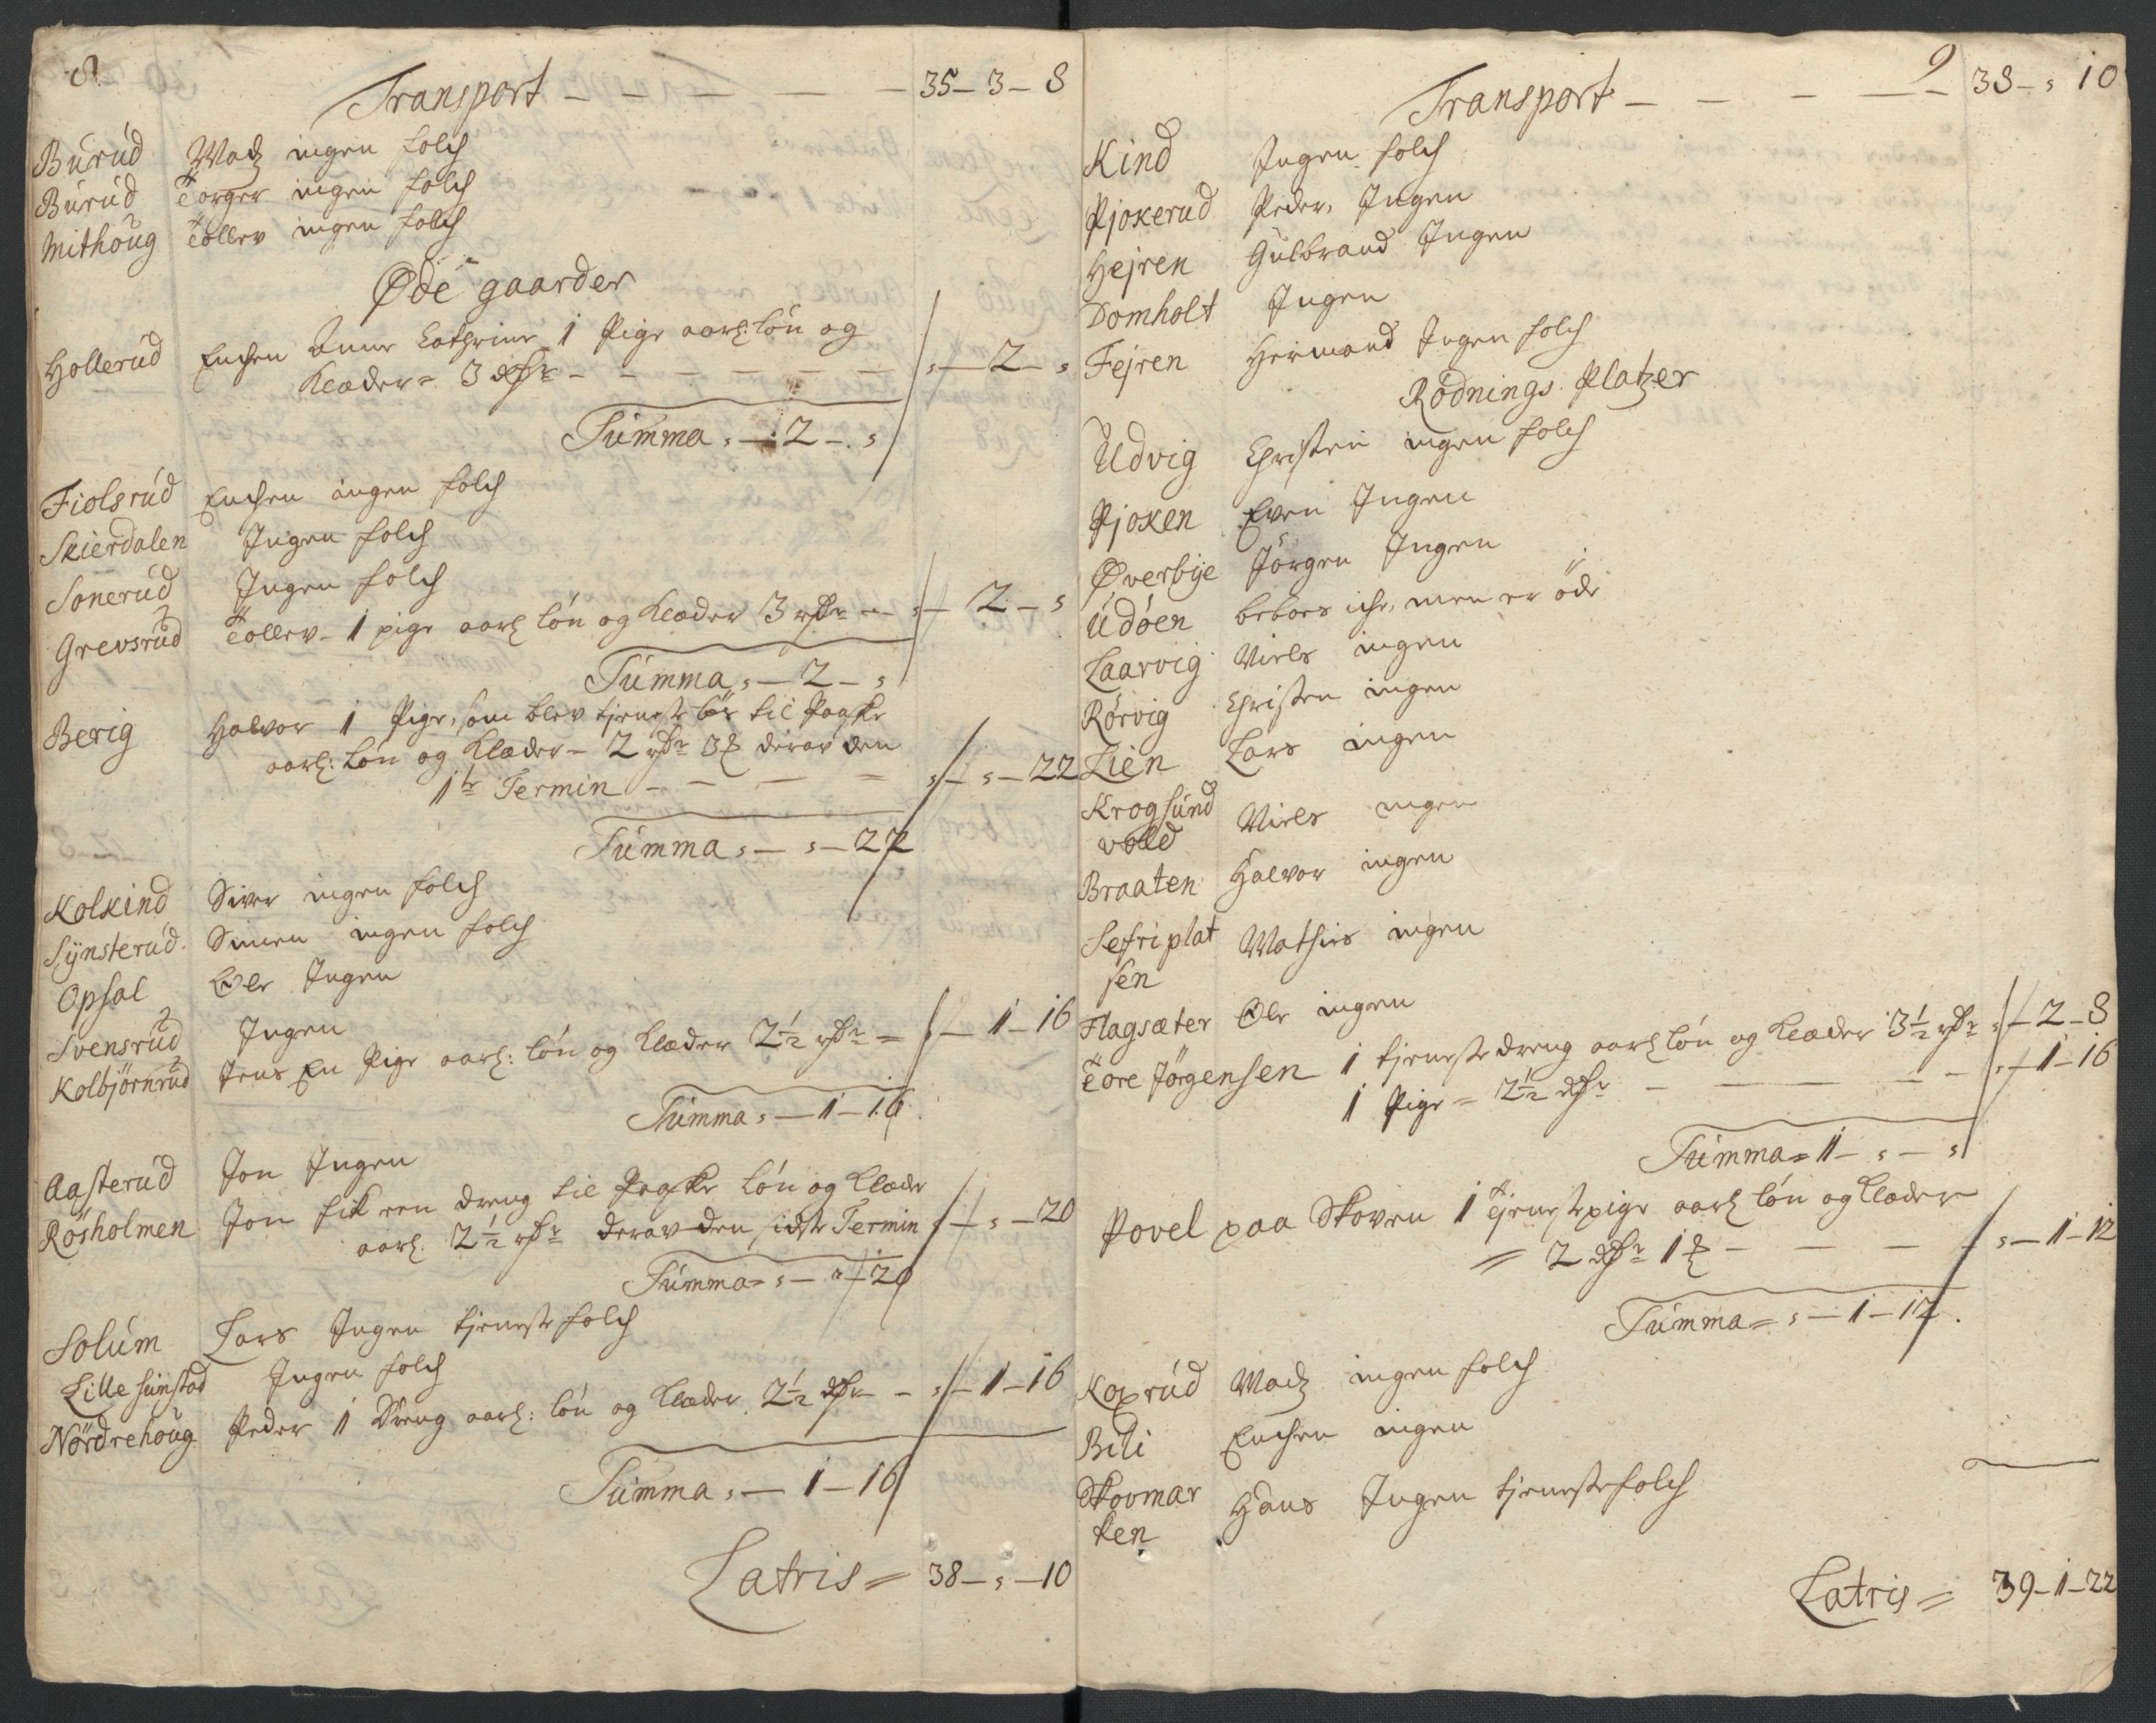 8
Transport - - - - - 35 - 3 - 8
Burud Madz ingen folch
Burud Torger ingen folch
Mithoug Tollev ingen folch
Øde gaarder
Hollerud Enchen Anne Cathrine 1 Pige aarl: løn og
Klæder = 3 rdr - - - - - - - 2 -
Summa - 2 -
Fiolsrud Enchen ingen folch
Skierdalen Ingen folch
Sonerud Ingen folch
Grevsrud Tollev - 1 pige aarl løn og Klæder 3 rdr - - 2 -
Summa - 2 -
Berig Halvor 1 Pige, som blev tieneste løs til Paaske
aarl: løn og Klæder - 2 rdr 3 derav den
1te Termin - - - - 22
Summa - - 22
Kolkind Siver ingen folch
Synsterud Simen ingen folch
Opsal Ole Ingen
Svensrud Ingen
Kolbjørnrud Jens En Pige aarl: løn og Klæder 2½ rdr = - 1 - 16
Summa - 1 - 16
Aasterud Jon Ingen
Røsholmen Jon fik een dreng til Paaske løn og Klæder
aarl. 2½ rdr derav den sidste Termin - - 20
Summa = - - 20
Solum Lars Ingen tjeneste folch
Lille sunstad Ingen folch
Nørdrehoug Peder 1 Dreng aarl: løn og Klæder 2½ rdr - - 1 - 16
Summa - 1 - 16
Latris = 38 - - 10
9
Transport - - - - 38 - - 10
Kind Ingen folch
Pjokerud Peder, Ingen
Hejren Gulbrand Ingen
Domholt Ingen
Fejren Hermand Ingen folch
Rødnings Platzer
Udvig Christen ingen folch
Pjoken Even Ingen
Øverbye Jørgen Ingen
Udøen beboes iche, men er øde
Laarvig Niels ingen
Rørvig Christen ingen
Lien Lars ingen
Krogsund
volld Niels ingen
Braaten Halvor ingen
Sefriplat
sen Mathies ingen
Flagsæter Ole ingen
Tore Jørgensen 1 tjeneste dreng aarl løn og Klæder 3½ rdr - 2 - 8
1 Pige = 2½ rdr - - - - - 1 - 16
Summa = 1 - -
Povel paa Skoven 1 Tjenestpige aarl løn og Klæder
= 2 rdr 1 - - - - - 1 - 12
Summa = - 1 - 12
Koxrud Madz ingen folch
Bili Enchen ingen
Skovmar
ken Hans Ingen tjenestefolch
Latris = 39 - 1 - 22